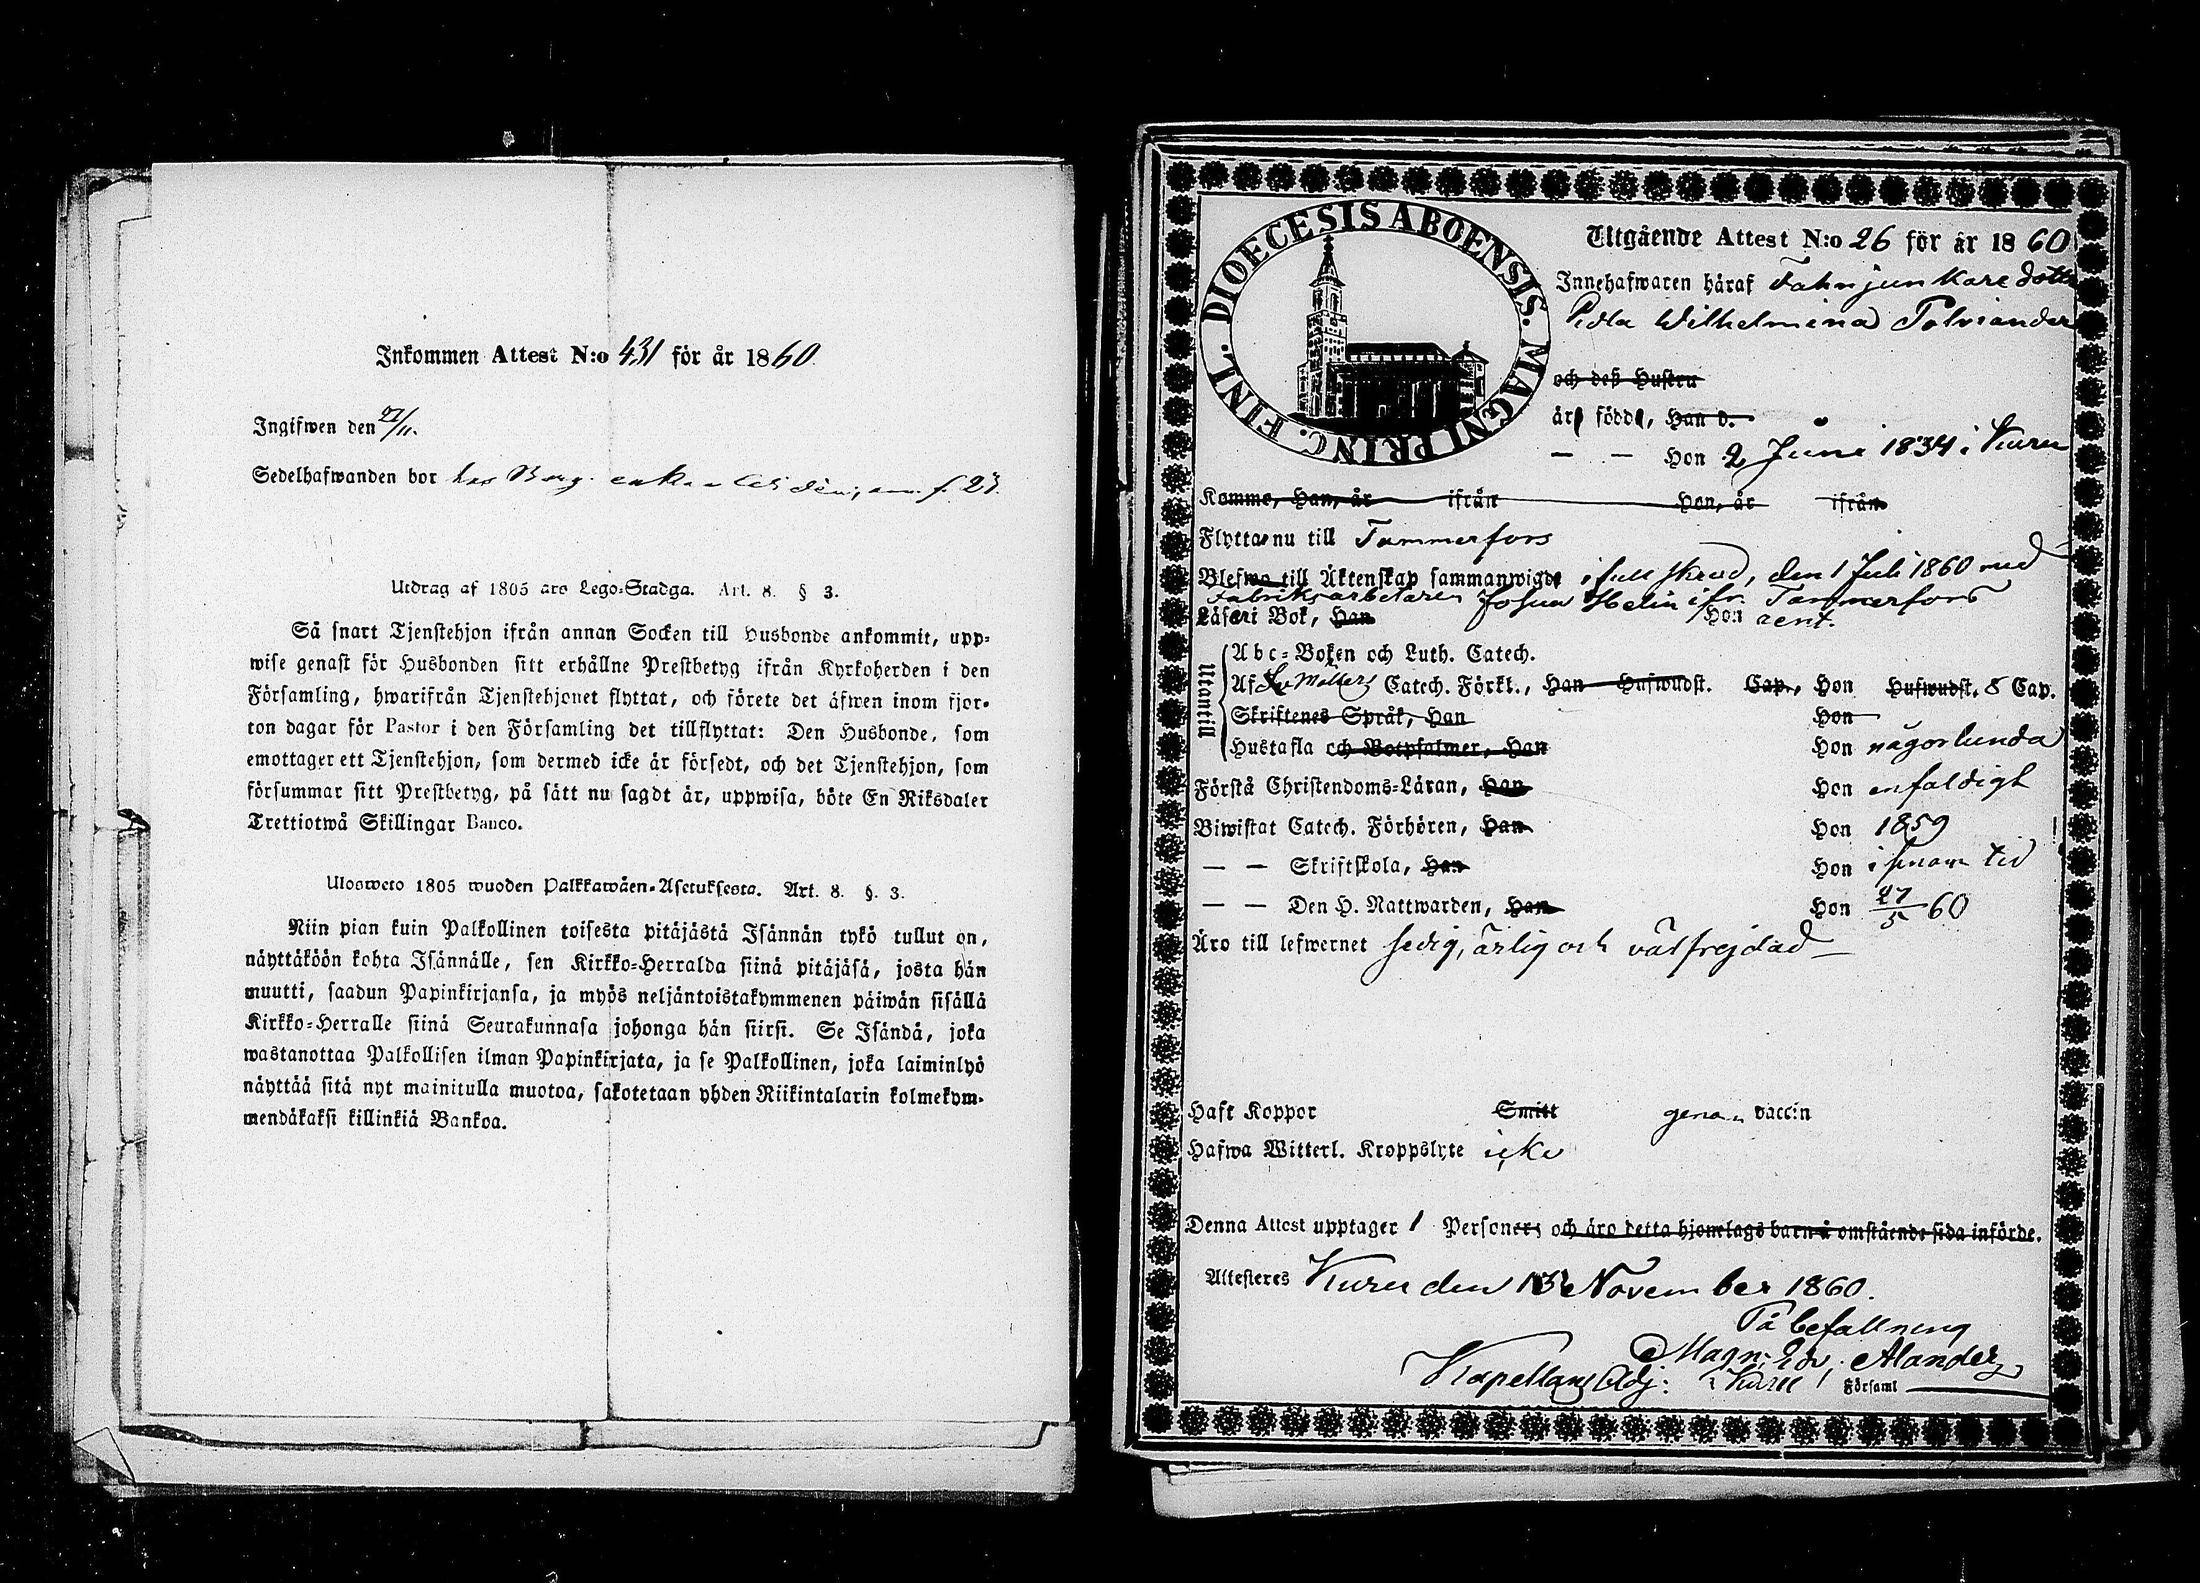 Inkommen Attest N:o 431 för år 1860.
Ingifwen den 27/11.
Sedelhafwanden bor hos f. 23.
Utdrag af 1805 års Lego-Stadga. Art. 8. § 3.
Så snart Tjenstehjon ifrån annan Socken till Husbonde ankommit, upp-
wise genast för Husbonden sitt erhållne Prestbetyg ifrån Kyrkoherden i den
Församling, hwarifrån Tjenstehjonet flyttat, och förete det äfwen inom fjor-
ton dagar för Pastor i den Församling det tillflyttat: Den Husbonde, som
emottager ett Tjenstehjon, som dermed icke är försedt, och det Tjenstehjon, som
försummar sitt Prestbetyg, på sätt nu sagdt är, uppwisa, böte En Riksdaler
Trettiotwå Skillingar Banco.
Ulosweto 1805 wuoden Palkkawäen-Asetuksesta. Art. 8. §. 3.
Niin pian kuin Palkollinen toisesta pitäjästä Isännän tykö tullut on,
näyttäköön kohta Isännälle, sen Kirkko-Herralda siinä pitäjäsä, josta hän
muutti, saadun Papinkirjansa, ja myös neljäntoistakymmenen päiwän sisällä
Kirkko-Herralle siinä Seurakunnasa johonga hän siirsi. Se Isändä, joka
wastanottaa Palkollisen ilman Papinkirjata, ja se Palkollinen, joka laiminlyö
näyttää sitä nyt mainitulla muotoa, sakotetaan yhden Riikintalarin kolmekym-
mendäkaksi killinkiä Bankoa.
DIOECESIS ABOENSIS. MAGNI PRINC. FINL.
Utgående Attest N:o 26 för år 1860
Innehafwaren häraf Fahnjunkare dottr
Wilhelmina Polviander
och deß Hustru
är född, Han d.
— — Hon 2 Juni 1834 i Kuru
Komme, Han, år ifrån Hon, år ifrån
Flyttar nu till Tammerfors
Blefwo till Äktenskap sammanwigde i full skrud, den 1 Juli 1860 med
Fabriksarbetaren Josua Helin ifr. Tammerfors
Läser i Bok, Han Hon rent.
Utantill
Abc-Boken och Luth. Catech.
Af Catech. Förkl., Han Hufwudst. Cap., Hon Hufwudst. 8 Cap.
Skriftenes Språk, Han Hon
Hustafla och Botpsalmer, Han Hon någorlunda
Förstå Christendoms-Läran, Han Hon enfaldigt
Biwistat Catech. Förhören, Han Hon 1859
— — Skriftskola, Han Hon i sinom tid
— — Den H. Nattwarden, Han Hon 27/5 60
Äro till lefwernet sedig, ärlig och välfrejdad
Haft Koppor Smitt genom vaccin
Hafwa Witterl. Kroppslyte icke
Denna Attest upptager 1 Personer, och äro detta hjonelags barn å omstående sida införde.
Attesteras Kuru den 13 November 1860.
På befallning
Magn. Edv. Alander
Kapellans Adj. i Kuru Församl